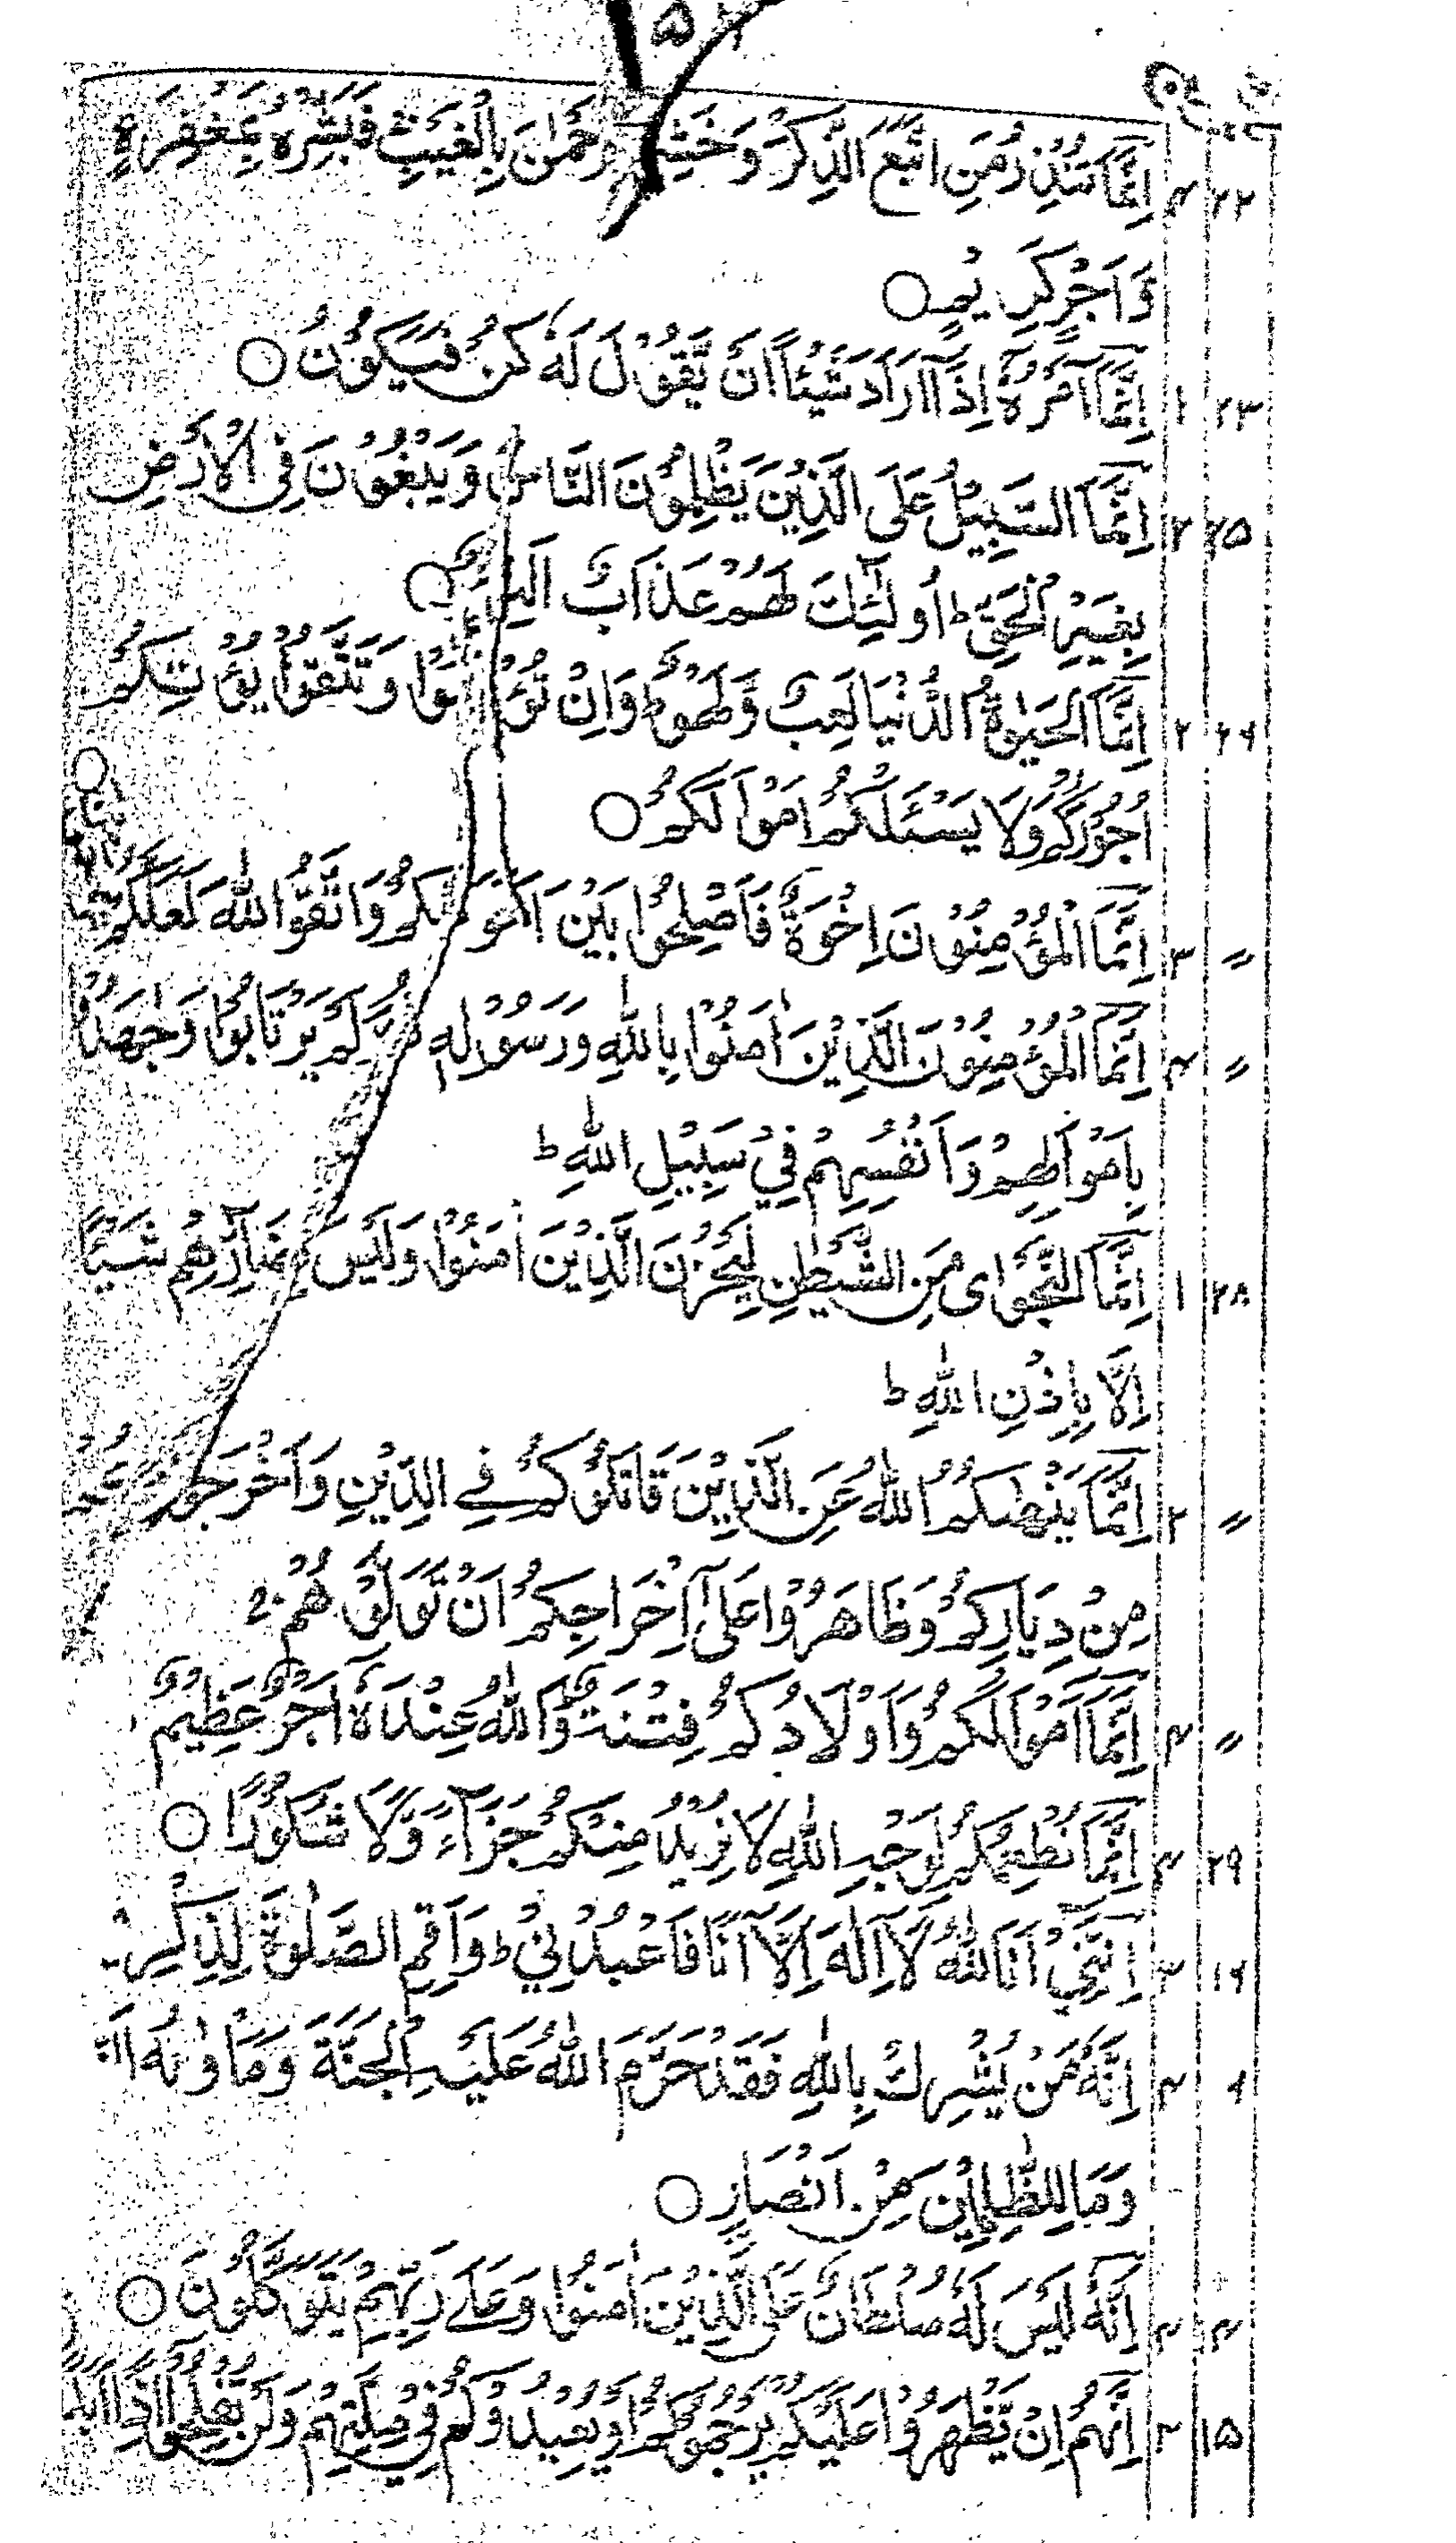 ۵۲
۲۲ ۴ اِنَّمَا تُنْذِرُ مَنِ اتَّبَعَ الذِّكْرَ وَخَشِىَ الرَّحْمٰنَ بِالْغَيْبِ فَبَشِّرْهُ بِمَغْفِرَةٍ
وَّاَجْرٍ كَرِيْمٍ ○
۲۳ ۱ اِنَّمَآ اَمْرُهٗٓ اِذَآ اَرَادَ شَيْئًا اَنْ يَّقُوْلَ لَهٗ كُنْ فَيَكُوْنُ ○
۲۵ ۲ اِنَّمَا السَّبِيْلُ عَلَى الَّذِيْنَ يَظْلِمُوْنَ النَّاسَ وَيَبْغُوْنَ فِى الْاَرْضِ
بِغَيْرِ الْحَقِّ ط اُولٰٓئِكَ لَهُمْ عَذَابٌ اَلِيْمٌ ○
۲۶ ۲ اِنَّمَا الْحَيٰوةُ الدُّنْيَا لَعِبٌ وَّلَهْوٌ ط وَاِنْ تُؤْمِنُوْا وَتَتَّقُوْا يُؤْتِكُمْ
اُجُوْرَكُمْ وَلَا يَسْئَلْكُمْ اَمْوَالَكُمْ ○
〃 ۳ اِنَّمَا الْمُؤْمِنُوْنَ اِخْوَةٌ فَاَصْلِحُوْا بَيْنَ اَخَوَيْكُمْ وَاتَّقُوا اللّٰهَ لَعَلَّكُمْ
〃 ۴ اِنَّمَا الْمُؤْمِنُوْنَ الَّذِيْنَ اٰمَنُوْا بِاللّٰهِ وَرَسُوْلِهٖ ثُمَّ لَمْ يَرْتَابُوْا وَجٰهَدُوْا
بِاَمْوَالِهِمْ وَاَنْفُسِهِمْ فِيْ سَبِيْلِ اللّٰهِ ط
۲۸ ۱ اِنَّمَا النَّجْوٰى مِنَ الشَّيْطٰنِ لِيَحْزُنَ الَّذِيْنَ اٰمَنُوْا وَلَيْسَ بِضَآرِّهِمْ شَيْئًا
اِلَّا بِاِذْنِ اللّٰهِ ط
〃 ۲ اِنَّمَا يَنْهٰىكُمُ اللّٰهُ عَنِ الَّذِيْنَ قَاتَلُوْكُمْ فِى الدِّيْنِ وَاَخْرَجُوْكُمْ
مِنْ دِيَارِكُمْ وَظَاهَرُوْا عَلٰٓى اِخْرَاجِكُمْ اَنْ تَوَلَّوْهُمْ ج
〃 ۴ اِنَّمَآ اَمْوَالُكُمْ وَاَوْلَادُكُمْ فِتْنَةٌ ط وَاللّٰهُ عِنْدَهٗٓ اَجْرٌ عَظِيْمٌ
۲۹ ۴ اِنَّمَا نُطْعِمُكُمْ لِوَجْهِ اللّٰهِ لَا نُرِيْدُ مِنْكُمْ جَزَآءً وَّلَا شُكُوْرًا ○
۱۶ ۳ اِنَّنِيْٓ اَنَا اللّٰهُ لَآ اِلٰهَ اِلَّآ اَنَا فَاعْبُدْنِيْ ط وَاَقِمِ الصَّلٰوةَ لِذِكْرِىْ
۶ ۴ اِنَّهٗ مَنْ يُّشْرِكْ بِاللّٰهِ فَقَدْ حَرَّمَ اللّٰهُ عَلَيْهِ الْجَنَّةَ وَمَاْوٰىهُ النَّارُ
وَمَا لِلظّٰلِمِيْنَ مِنْ اَنْصَارٍ ○
۱۴ ۴ اِنَّهٗ لَيْسَ لَهٗ سُلْطَانٌ عَلَى الَّذِيْنَ اٰمَنُوْا وَعَلٰى رَبِّهِمْ يَتَوَكَّلُوْنَ ○
۱۵ ۲ اِنَّهُمْ اِنْ يَّظْهَرُوْا عَلَيْكُمْ يَرْجُمُوْكُمْ اَوْ يُعِيْدُوْكُمْ فِيْ مِلَّتِهِمْ وَلَنْ تُفْلِحُوْٓا اِذًا اَبَدًا